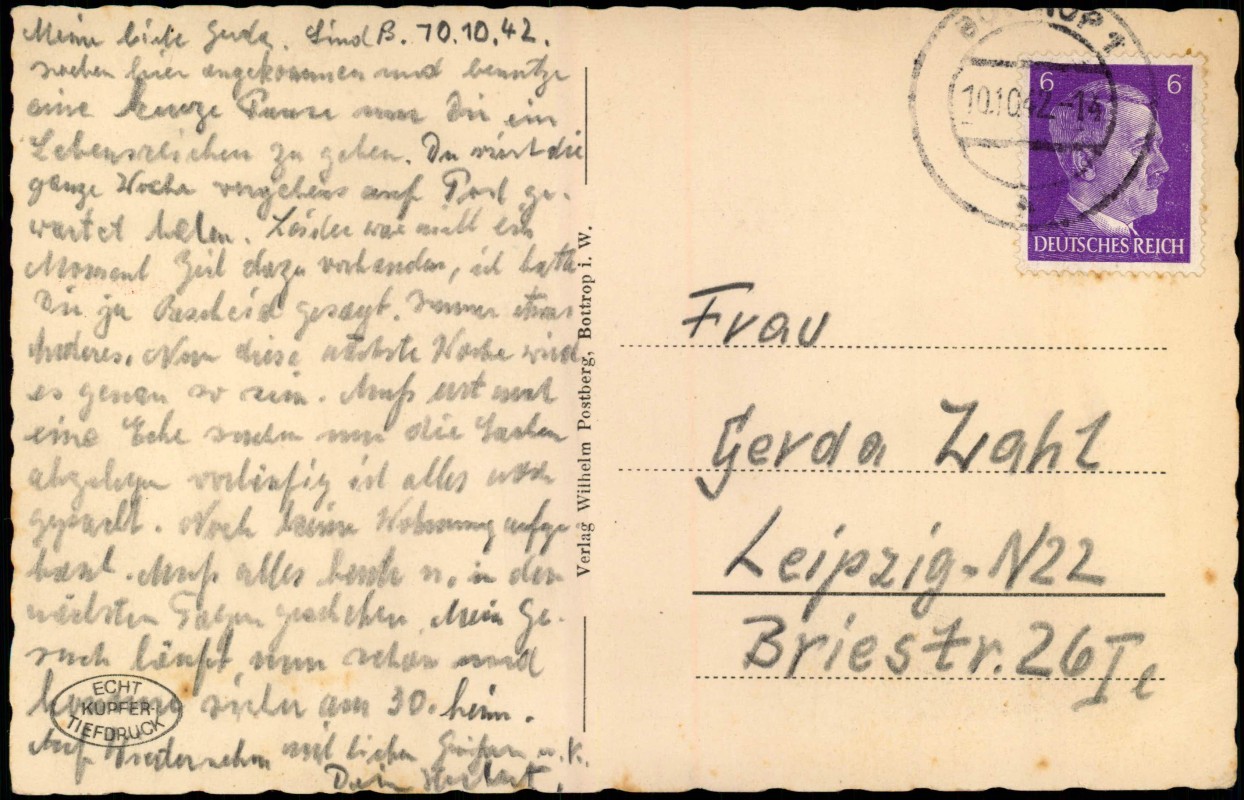 Meine liebe Gerda. Sind B. 10.10.42.
soeben hier angekommen und benutze
eine kurze Pause um Dir ein
Lebenszeichen zu geben. Du wirst die
ganze Woche vergebens auf Post ge-
wartet haben. Leider war nicht ein
Moment Zeit dazu vorhanden, ich hatte
Dir ja Bescheid gesagt. Immer etwas
Anderes. Nun diese nächste Woche wird
es genau so sein. Muß erst mal
eine Ecke suchen um die Sachen
abzulegen vorläufig ist alles noch
gepackt. Noch keine Wohnung aufge-
baut. Muß alles heute u. in den
nächsten Tagen geschehen. Mein Ge-
such läuft nun schon und
komme sicher am 30. heim.
Auf Wiedersehn mit lieben Grüßen u. K.
Dein Herbert.
ECHT
KUPFER-
TIEFDRUCK
Verlag Wilhelm Postberg, Bottrop i. W.
BOTTROP 1
10.10.42.-14
6 6
DEUTSCHES REICH
Frau
Gerda Zahl
Leipzig-N22
Briestr. 26 I